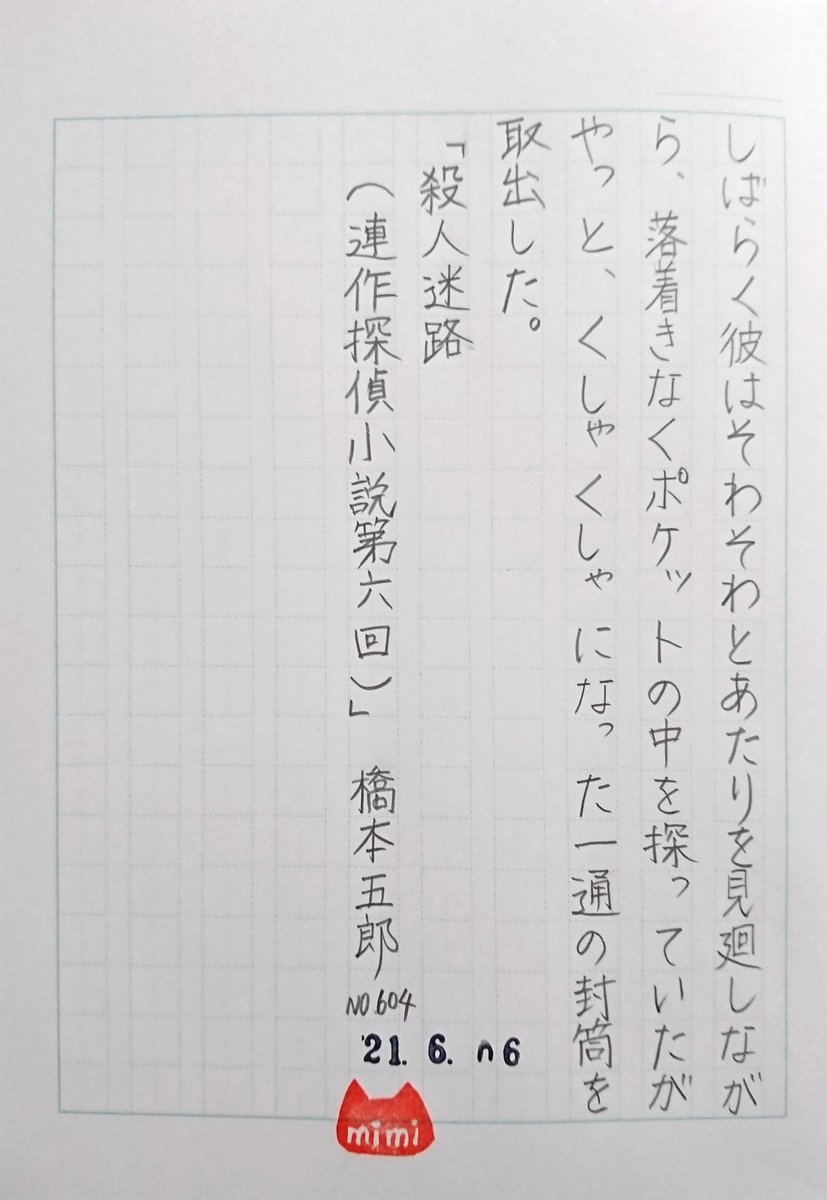 しばらく彼はそわそわとあたりを見廻しなが
ら、落着きなくポケットの中を探っていたが
やっと、くしゃくしゃになった一通の封筒を
取出した。
「殺人迷路
(連作探偵小説第六回)」 橋本五郎
NO.604
21. 6. 06
mimi